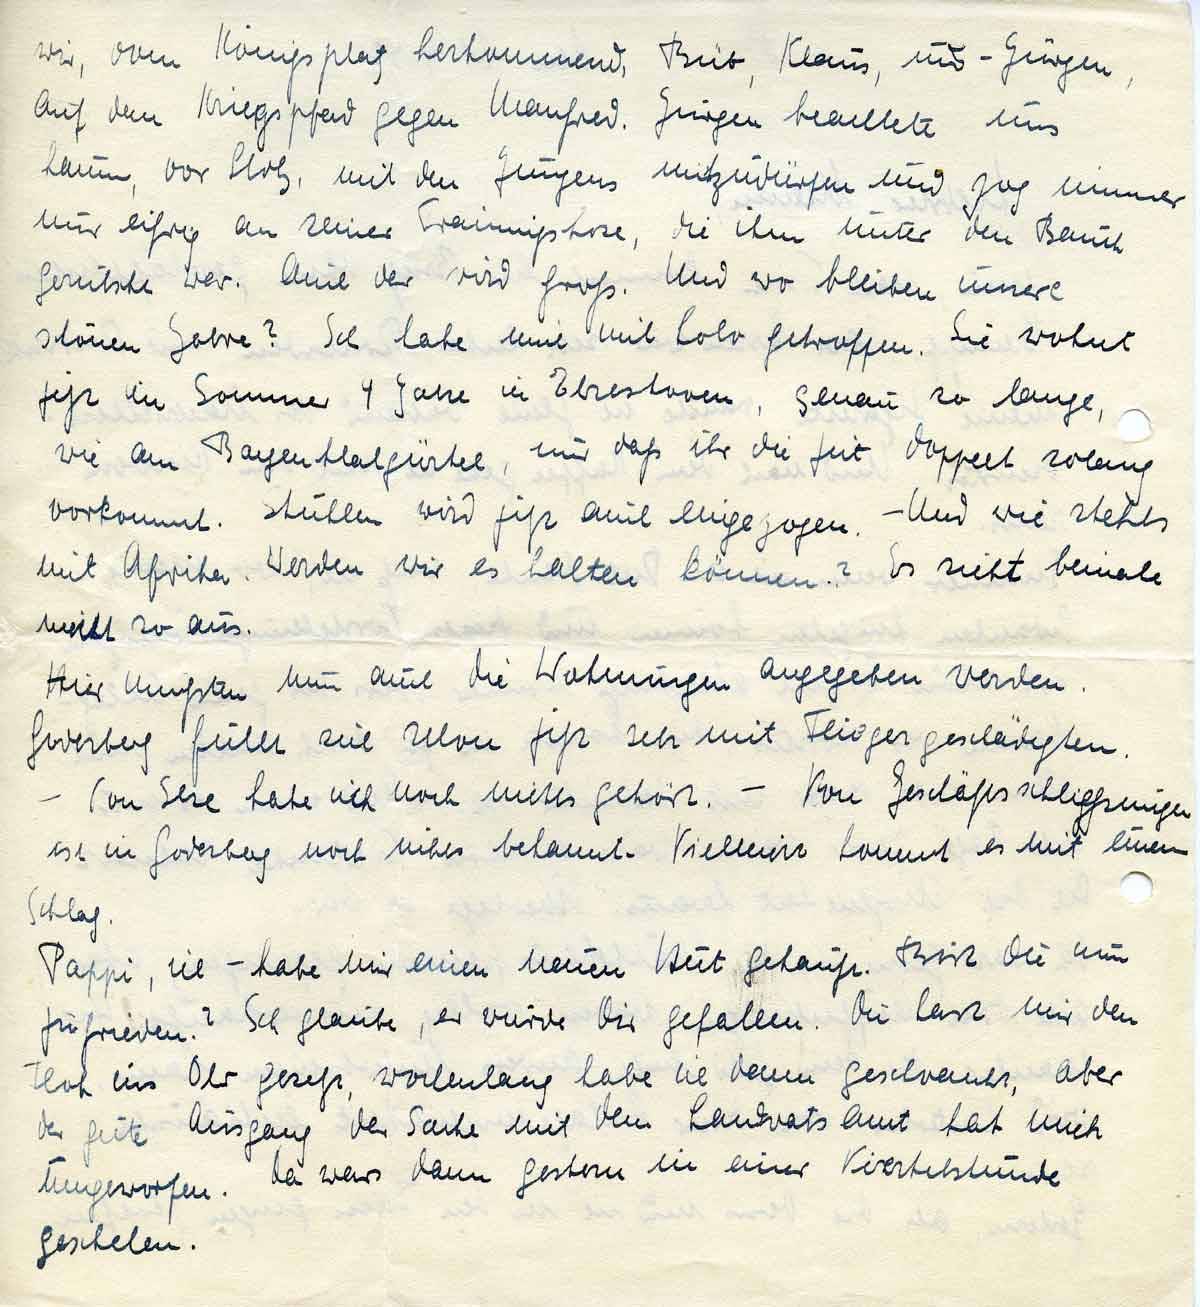 wir, vom Königsplatz herkommend, Bub, Klaus, und – Jürgen,
auf dem Kriegspfad gegen Manfred. Jürgen beachtete uns
kaum, vor Stolz, mit den Jungens mitzudürfen und zog immer
nur eifrig an seiner Trainingshose, die ihm unter den Bauch
gerutscht war. Auch der wird groß. Und wo bleiben unsere
schönen Jahre? Ich habe mich mit Lolo getroffen. Sie wohnt
jetzt im Sommer 4 Jahre in Ehreshoven, genau so lange,
wie am Bayenthalgürtel, nur daß ihr die Zeit doppelt solang
vorkommt. wird jetzt auch eingezogen. – Und wie stehts
mit Afrika. Werden wir es halten können.? Es sieht beinahe
nicht so aus.
Hier mußten nun auch die Wohnungen angegeben werden.
Godesberg füllt sich schon jetzt sehr mit Fliegergeschädigten.
– Von Ilse habe ich noch nichts gehört. – Von Geschäftsschließungen
ist in Godesberg noch nichts bekannt. Vielleicht kommt es mit einem
Schlag.
Pappi, ich – habe mir einen neuen Hut gekauft. Bist Du nun
zufrieden? Ich glaube, er würde Dir gefallen. Du hast mir den
Floh ins Ohr gesetzt, wochenlang habe ich dann geschwankt, aber
der gute Ausgang der Sache mit dem Landratsamt hat mich
umgeworfen. Da wars dann gestern in einer Viertelstunde
geschehen.